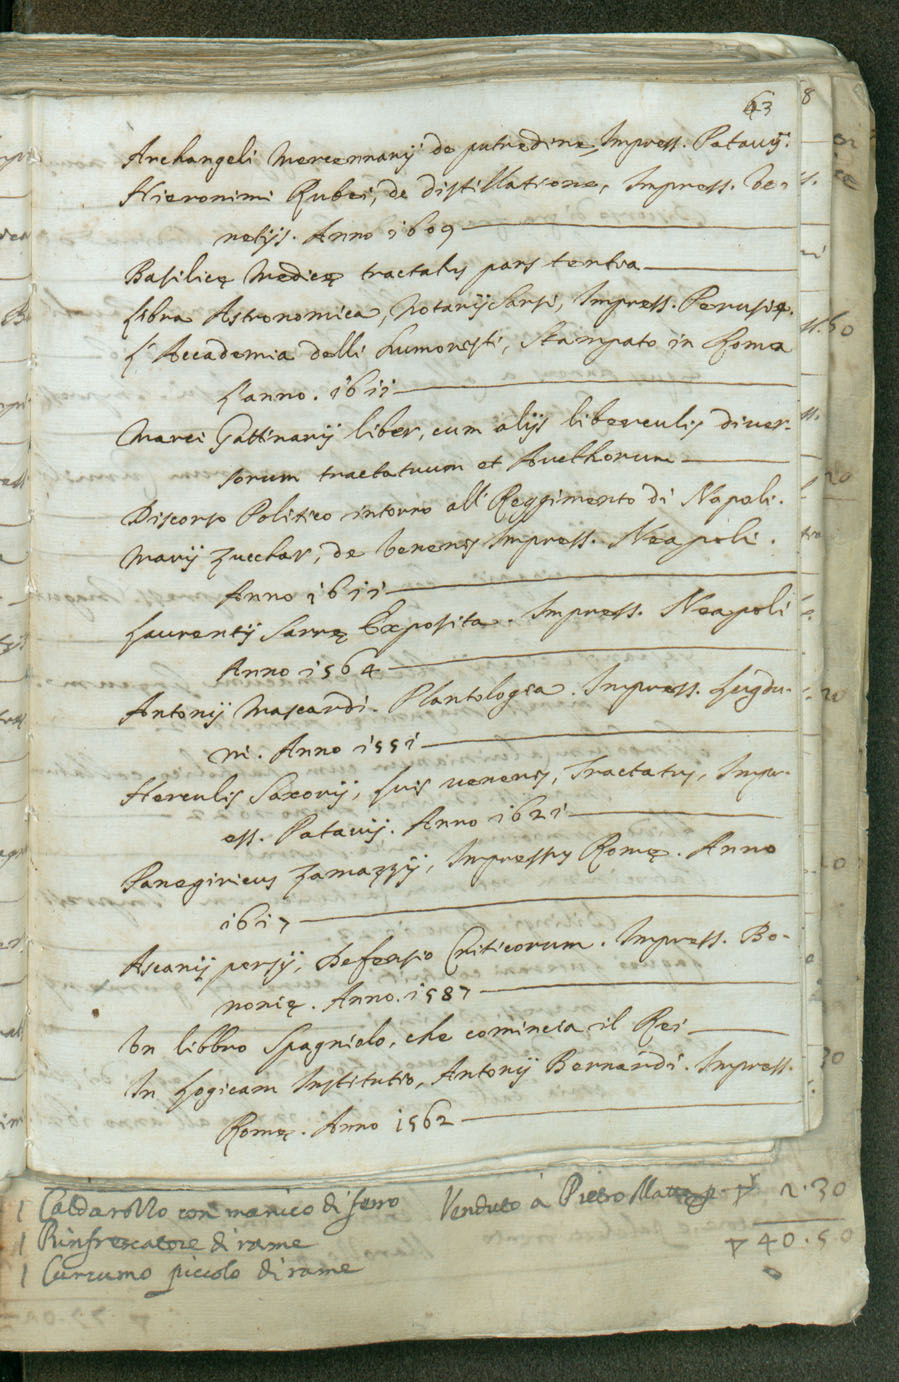 43
8
Archangeli Mercennarij de putredine, Impress. Patavij.
Hieronimi Rubei, de distillatione, Impress. Ve-
netijs. Anno 1609
Basilicę Medicę tractatus pars tertia
Libra Astronomica, Notarij Sarsi, Impress. Perusię.
L'Accademia delli Humoristi, Stampato in Roma
L'anno. 1611
Marci Gattinarij liber, cum alijs liberculis diver-
sorum tractatuum et Aucthorum
Discorso Politico intorno all' Reggimento di Napoli.
Marij Zucchar, de venenis Impress. Neapoli.
Anno 1611
Laurentij Sarrę Exposita. Impress. Neapoli
Anno 1564
Antonij Mascardi. Plantologia. Impress. Lugdu-
ni. Anno 1551
Herculis Saxonij, Luis veneris, Tractatus, Impr-
ess. Patavij. Anno 1621
Panegiricus Zamazzij, Impressus Romę. Anno
1617
Ascanij persij, Defensio Criticorum. Impress. Bo-
nonię. Anno. 1587
Un libbro Spagnolo, che comincia il Rei
In Logicam Institutio, Antonij Bernardi. Impress.
Romę. Anno 1562
1 Caldarozzo con manico di ferro Venduto à Pietro 2.30
1 Rinfrescatore di rame 40.50
1 Cuccumo piccolo di rame